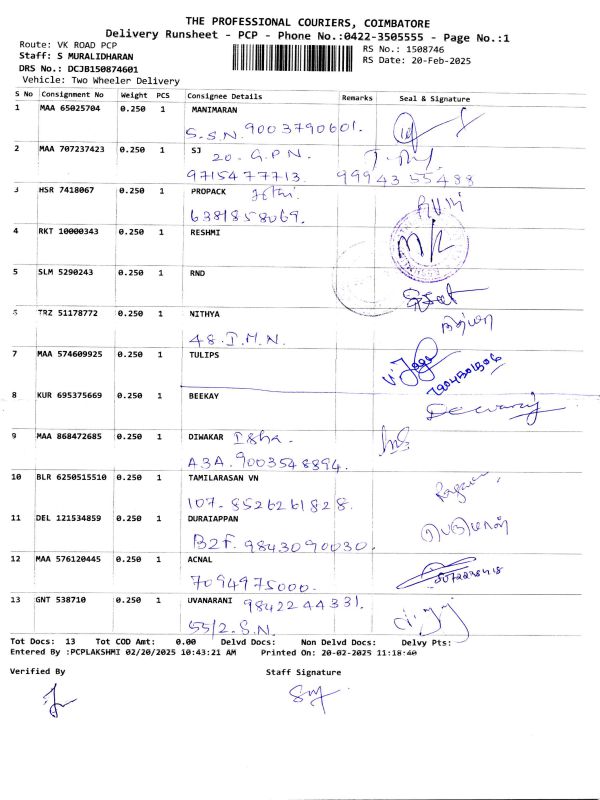 THE PROFESSIONAL COURIERS, COIMBATORE
Delivery Runsheet - PCP - Phone No.:0422-3505555 - Page No.:1
Route: VK ROAD PCP
Staff: S MURALIDHARAN
DRS No.: DCJB150874601
Vehicle: Two Wheeler Delivery
RS No.: 1508746
RS Date: 20-Feb-2025
S No Consignment No Weight PCS Consignee Details Remarks Seal & Signature
1 MAA 65025704 0.250 1 MANIMARAN
S.S.N. 9003790601.
2 MAA 707237423 0.250 1 SJ
20. G.P.N.
9715477713. 99943 55488
3 HSR 7418067 0.250 1 PROPACK
6381858069.
4 RKT 10000343 0.250 1 RESHMI
5 SLM 5290243 0.250 1 RND
6 TRZ 51178772 0.250 1 NITHYA
48. I.M.N.
7 MAA 574609925 0.250 1 TULIPS
8 KUR 695375669 0.250 1 BEEKAY
9 MAA 868472685 0.250 1 DIWAKAR Isha.
A3A. 9003548894.
10 BLR 6250515510 0.250 1 TAMILARASAN VN
107. 8526261828.
11 DEL 121534859 0.250 1 DURAIAPPAN
B2F. 9843090030.
12 MAA 576120445 0.250 1 ACNAL
7094975000.
13 GNT 538710 0.250 1 UVANARANI 9842244331.
55/2. S.N.
Tot Docs: 13 Tot COD Amt: 0.00 Delvd Docs: Non Delvd Docs: Delvy Pts:
Entered By :PCPLAKSHMI 02/20/2025 10:43:21 AM Printed On: 20-02-2025 11:18:40
Verified By Staff Signature